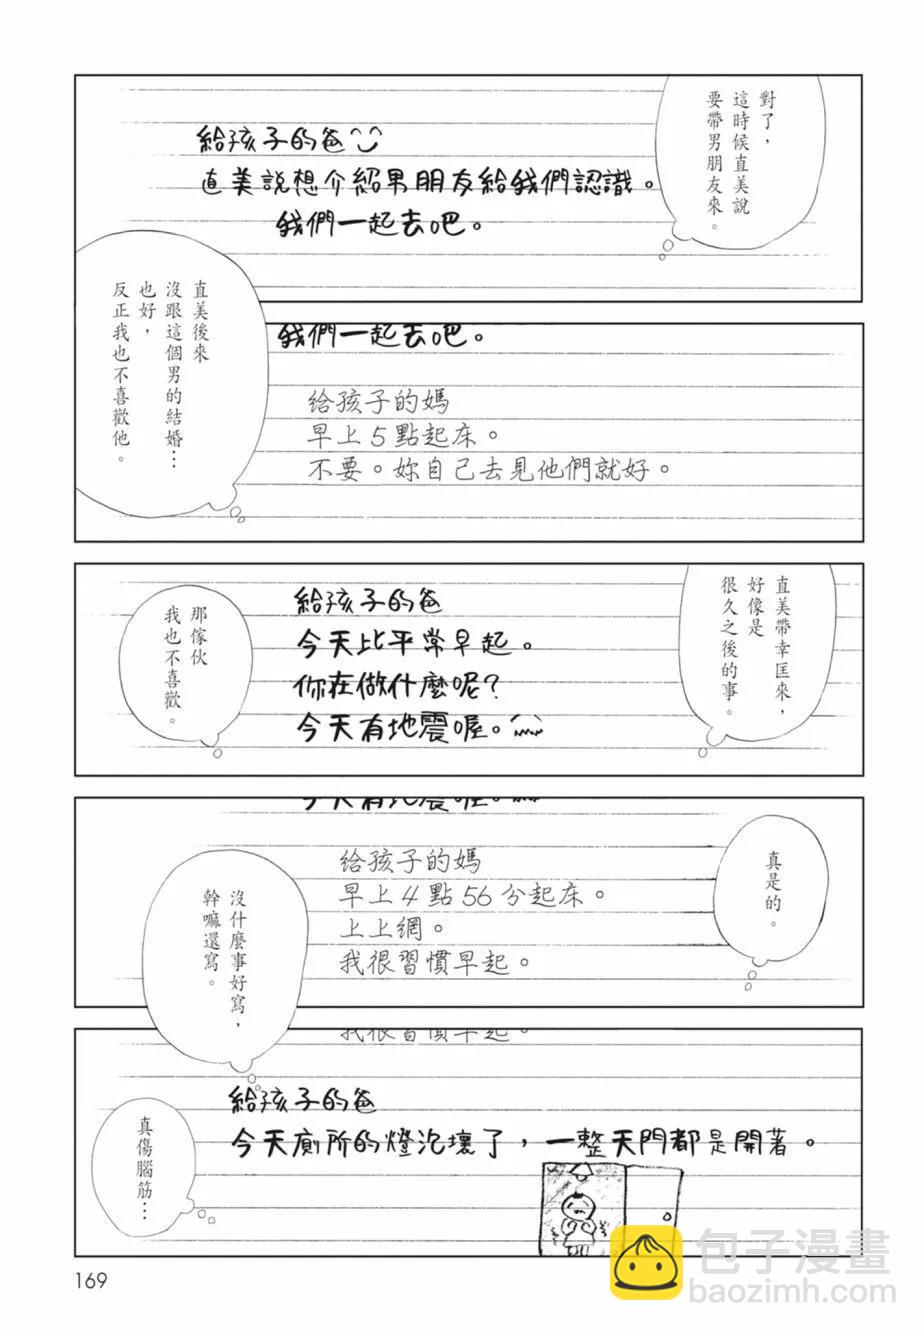 對了，
這時候直美說
要帶男朋友來。
給孩子的爸
直美說想介紹男朋友給我們認識。
我們一起去吧。
直美後來
沒跟這個男的結婚…
也好，
反正我也不喜歡他。
我們一起去吧。
给孩子的媽
早上5點起床。
不要。妳自己去見他們就好。
直美帶幸匡來，
好像是
很久之後的事。
給孩子的爸
今天比平常早起。
你在做什麼呢?
今天有地震喔。
那傢伙
我也不喜歡。
今天有地震喔。
真是的。
给孩子的媽
早上4點56分起床。
上上網。
我很習慣早起。
沒什麼事好寫，
幹嘛還寫。
我很習慣早起。
給孩子的爸
今天廁所的燈泡壞了，一整天門都是開著。
真傷腦筋…
169
包子漫畫
baozimh.com